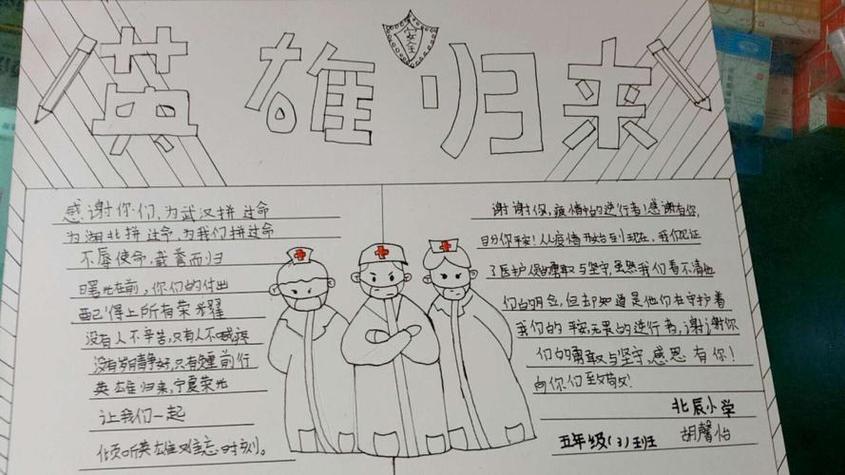 英雄归来
安全
感谢你们,为武汉拼过命
为湖北拼过命,为我们拼过命
不辱使命,载誉而归
曙光在前,你们的付出
配得上所有荣耀
没有人不辛苦,只有人不喊疼
没有岁月静好,只有负重前行
英雄归来,宁夏荣光
让我们一起
倾听英雄难忘时刻。
谢谢你,疫情中的逆行者!感谢有你,
日分你平安!从疫情开始到现在,我们见证
了医护人员的勇敢与坚守,虽然我们看不清他
们的月色,但却知道是他们在守护着
我们的平安,无畏的逆行者,谢谢你
们的勇敢与坚守,感恩有你!
向你们致敬!
北辰小学
五年级(3)班 胡馨怡